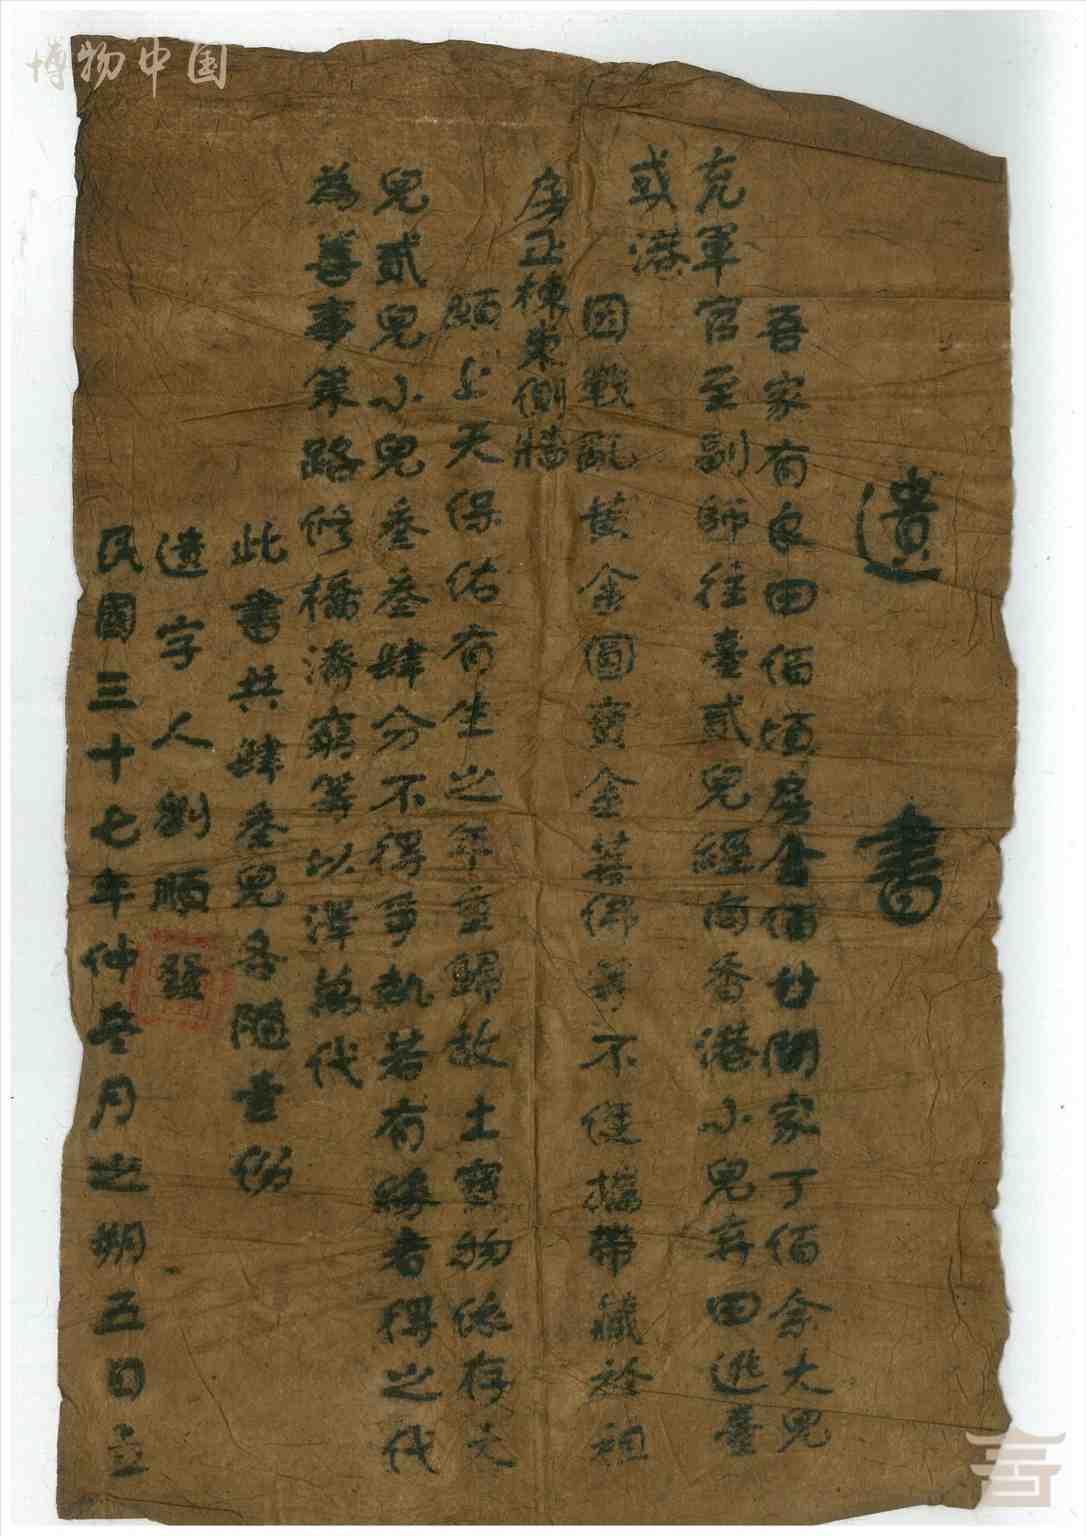 博物中国
遺書
吾家有良田佰頃房舍佰廿間家丁佰余大兒
充軍官至副師往臺貳兒經商香港小兒弃田逃臺
或港
因戰亂黄金圓寶金菩佛等不便攜帶藏於祖
房正棟東側牆
願上天保佑有生之年重歸故土寶物依存大
兒貳兒小兒叁叁肆分不得爭執若有緣者得之代
為善事築路修橋濟窮等以澤萬代
此書共肆叁兒各隨壹份
遺字人劉順發
民國三十七年仲冬月之朔五日立